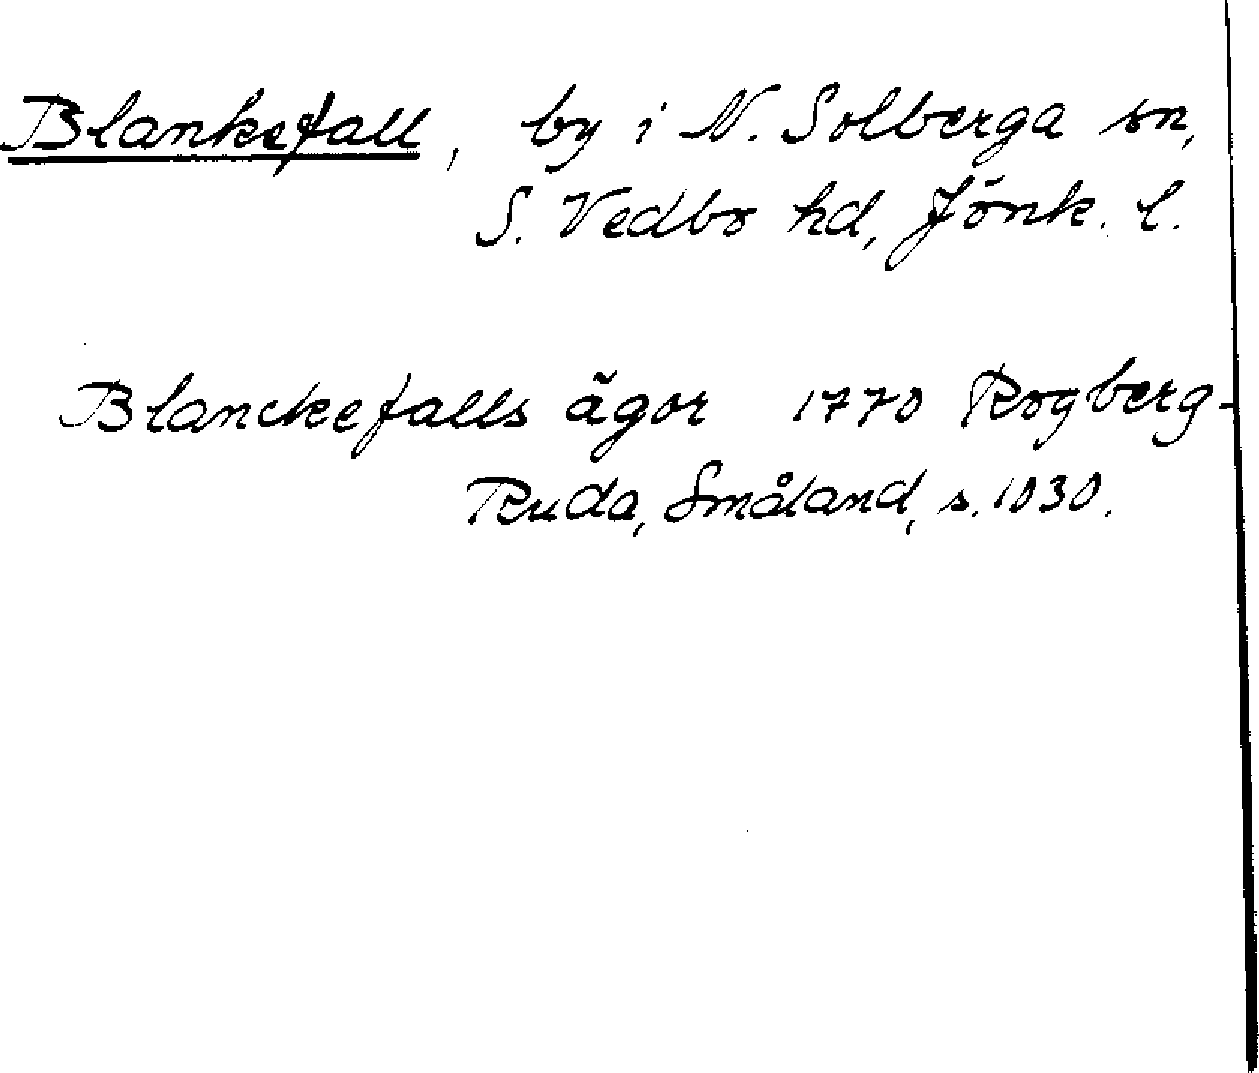 Blankefall, by i N. Solberga sn,
S. Vedbo hd, Jönk. l.
Blanckefalls ägor 1770 Rogberg-
Ruda, Småland, s. 1030.